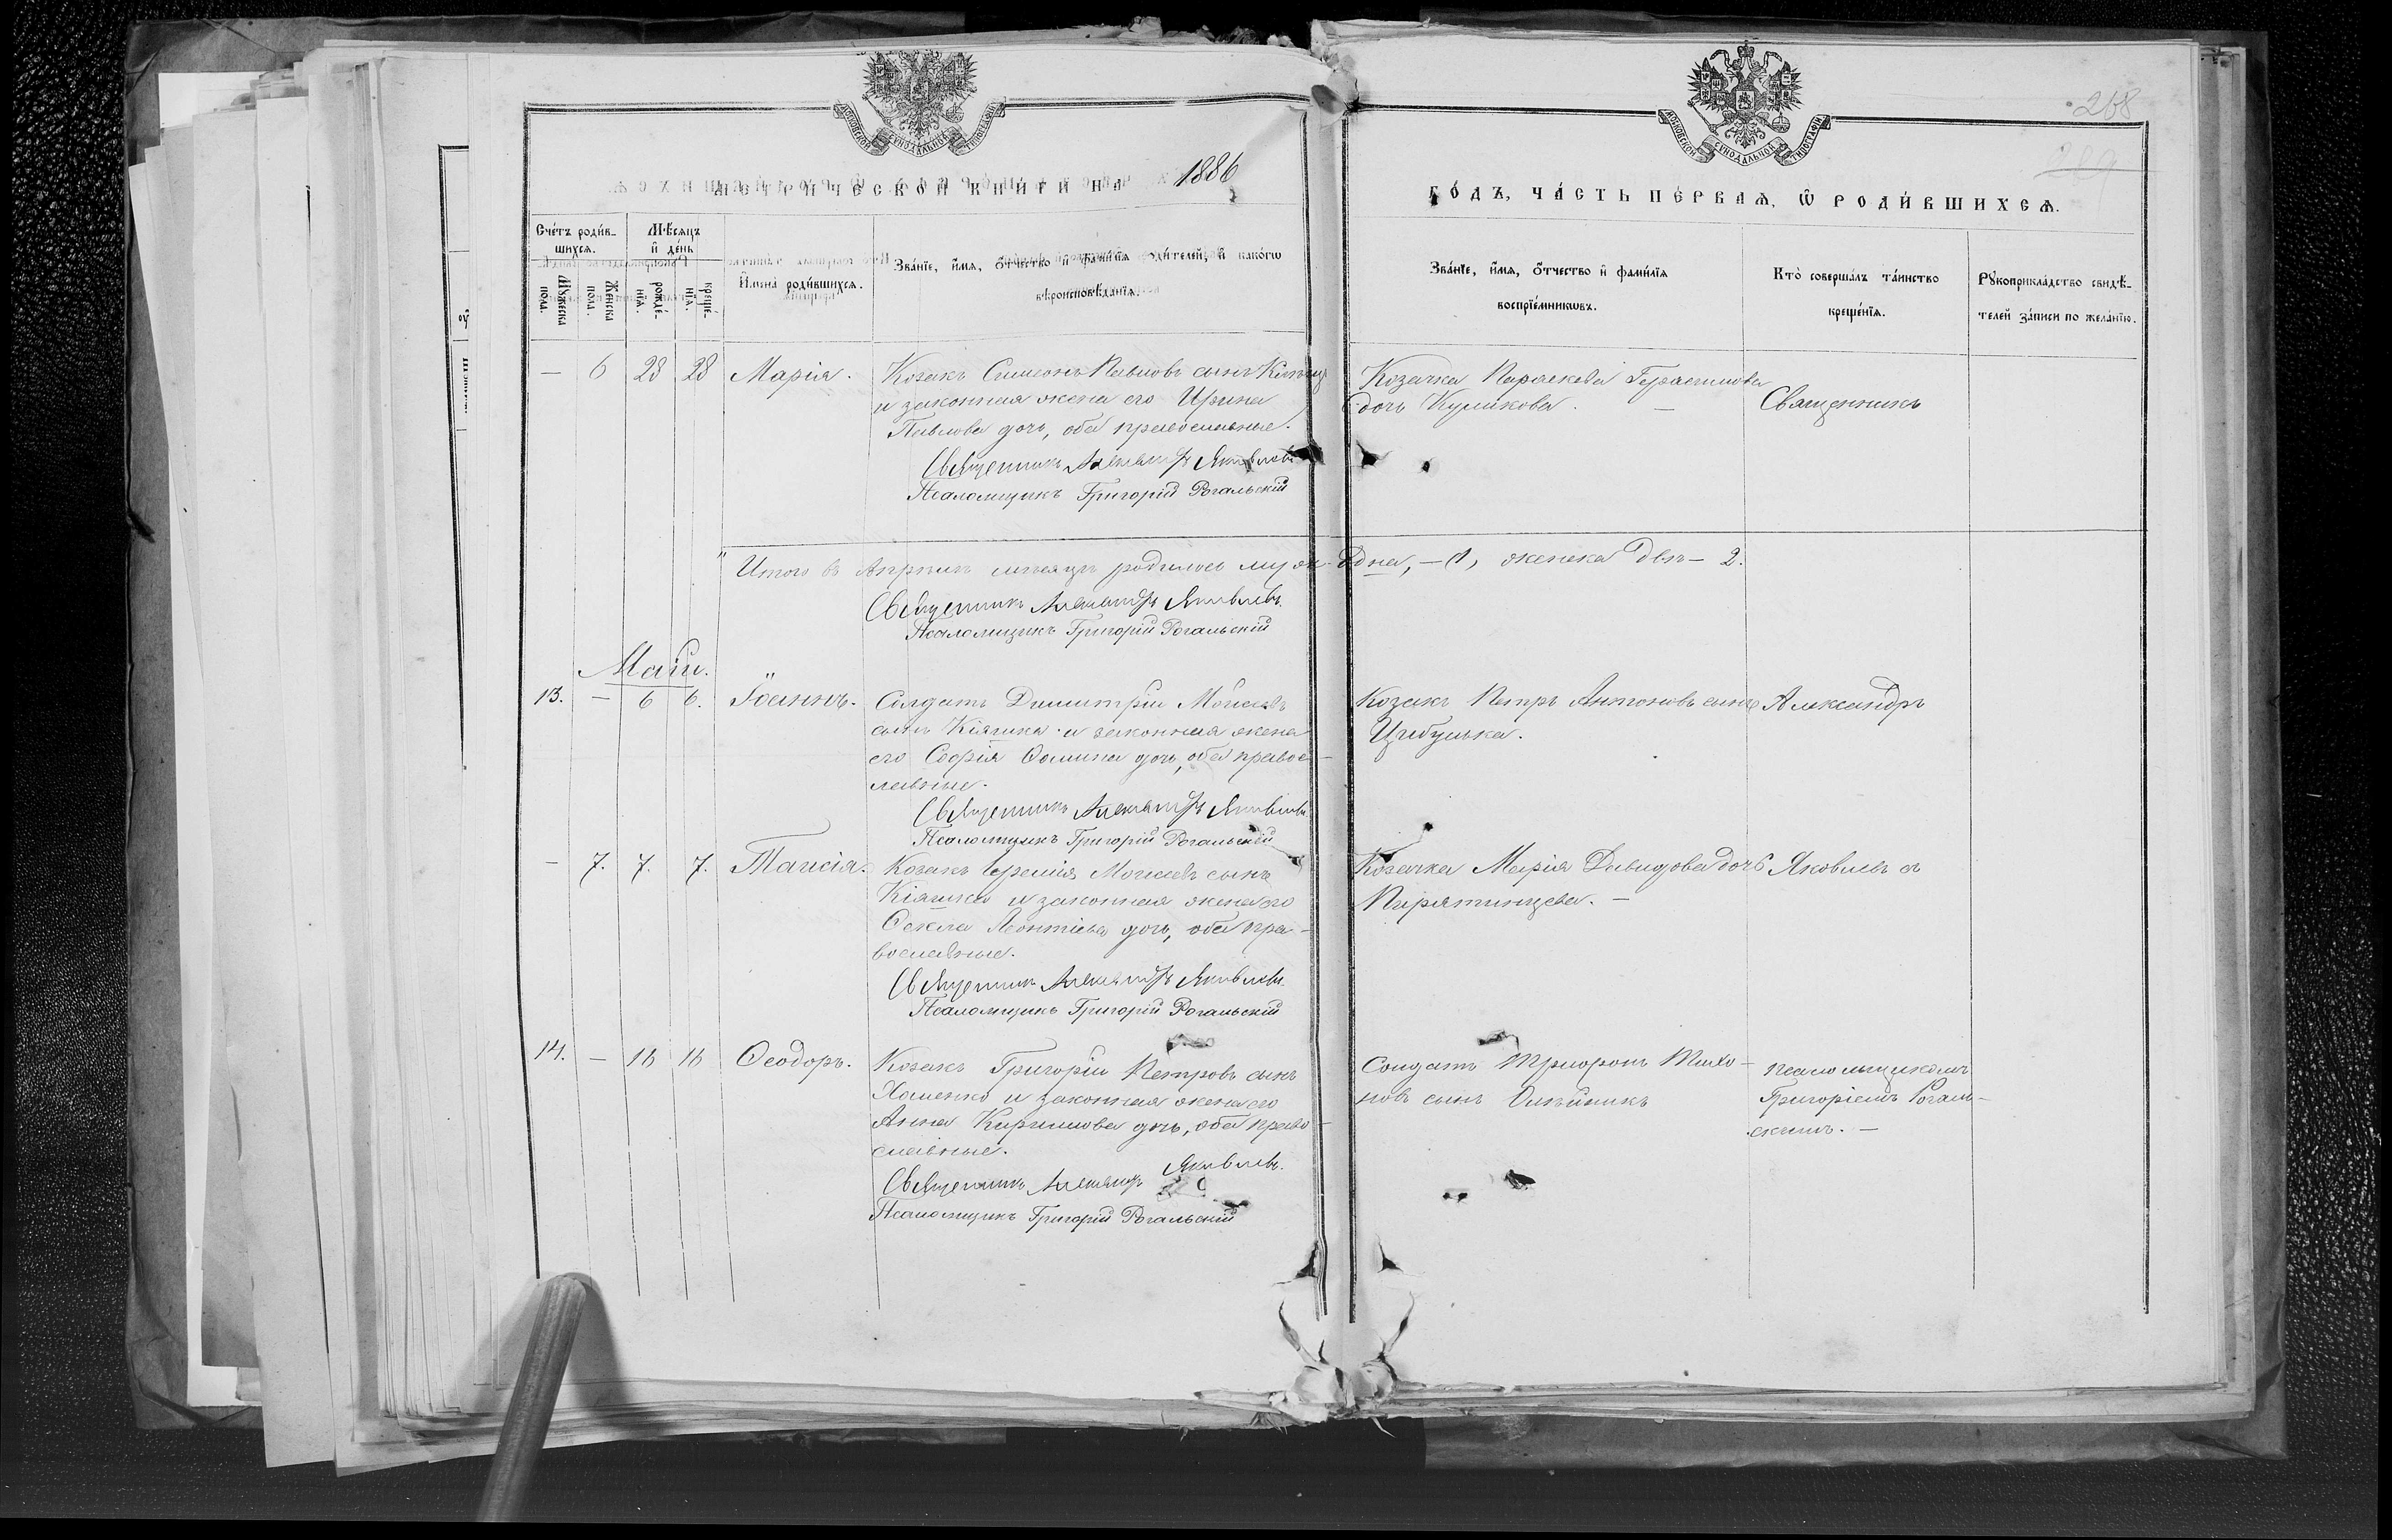 268
МОСКОВСКОЙ СѴНОДАЛЬНОЙ ТИПОГРАФІИ
МОСКОВСКОЙ СѴНОДАЛЬНОЙ ТИПОГРАФІИ
МЕТРИЧЕСКОЙ КНИГИ НА 1886
ГОДЪ, ЧАСТЬ ПЕРВАѦ, Ѡ РОДИВШИХСѦ.
Счетъ родив-
шихсѧ.
Мѣсяцъ
и день
Мужеска
пола.
Женска
пола.
рожде-
нїѧ.
креще-
нїѧ.
Имена родившихсѧ.
Званїе, имѧ, отчество и фамилїѧ родителей, и какогѡ
вѣроисповѣданїѧ.
Званїе, имѧ, отчество и фамилїѧ
воспрїемникѡвъ.
Кто совершалъ таинство
крещенїѧ.
Рукоприкладство свидѣ-
телей записи по желанїю.
— 6 28 28 Марія. Козакъ Симеонъ Павловъ сынъ
и законная жена его Ирина
Павлова дочь, оба православные.
Священникъ Александръ Яковлевъ
Псаломщикъ Григорій Рогальскій
Козачка Параскева Герасимова
дочь Куликова. —
Священникъ
Итого въ Апрѣлѣ мѣсяцѣ родилось муж. одна, — 1, женска двѣ — 2.
Священникъ Александръ Яковлевъ.
Псаломщикъ Григорій Рогальскій
Маій.
13. — 6 6. Іоаннъ. Солдатъ Димитрій Моисеевъ
сынъ Кіяшка и законная жена
его Софія Ѳомина дочь, оба правос-
лавные.
Священникъ Александръ Яковлевъ
Псаломщикъ Григорій Рогальскій
Козакъ Петръ Антоновъ сынъ
Цибулька.
Александръ
— 7. 7. 7. Таисія. Козакъ Іеремія Моисеевъ сынъ
Кіяшко и законная жена его
Ѳекла Леонтіева дочь, оба пра-
вославные.
Священникъ Александръ Яковлевъ.
Псаломщикъ Григорій Рогальскій
Козачка Марія Давидова дочь
Пирятинцева. —
Яковлевъ съ
14. — 16 16 Ѳеодоръ. Козакъ Григорій Петровъ сынъ
Хоменко и законная жена его
Анна Кириллова дочь, оба право-
славные.
Священникъ Александръ Яковлевъ.
Псаломщикъ Григорій Рогальскій
Солдатъ Тихо-
новъ сынъ Олѣйникъ
псаломщикомъ
Григоріемъ Рогаль-
скимъ. —